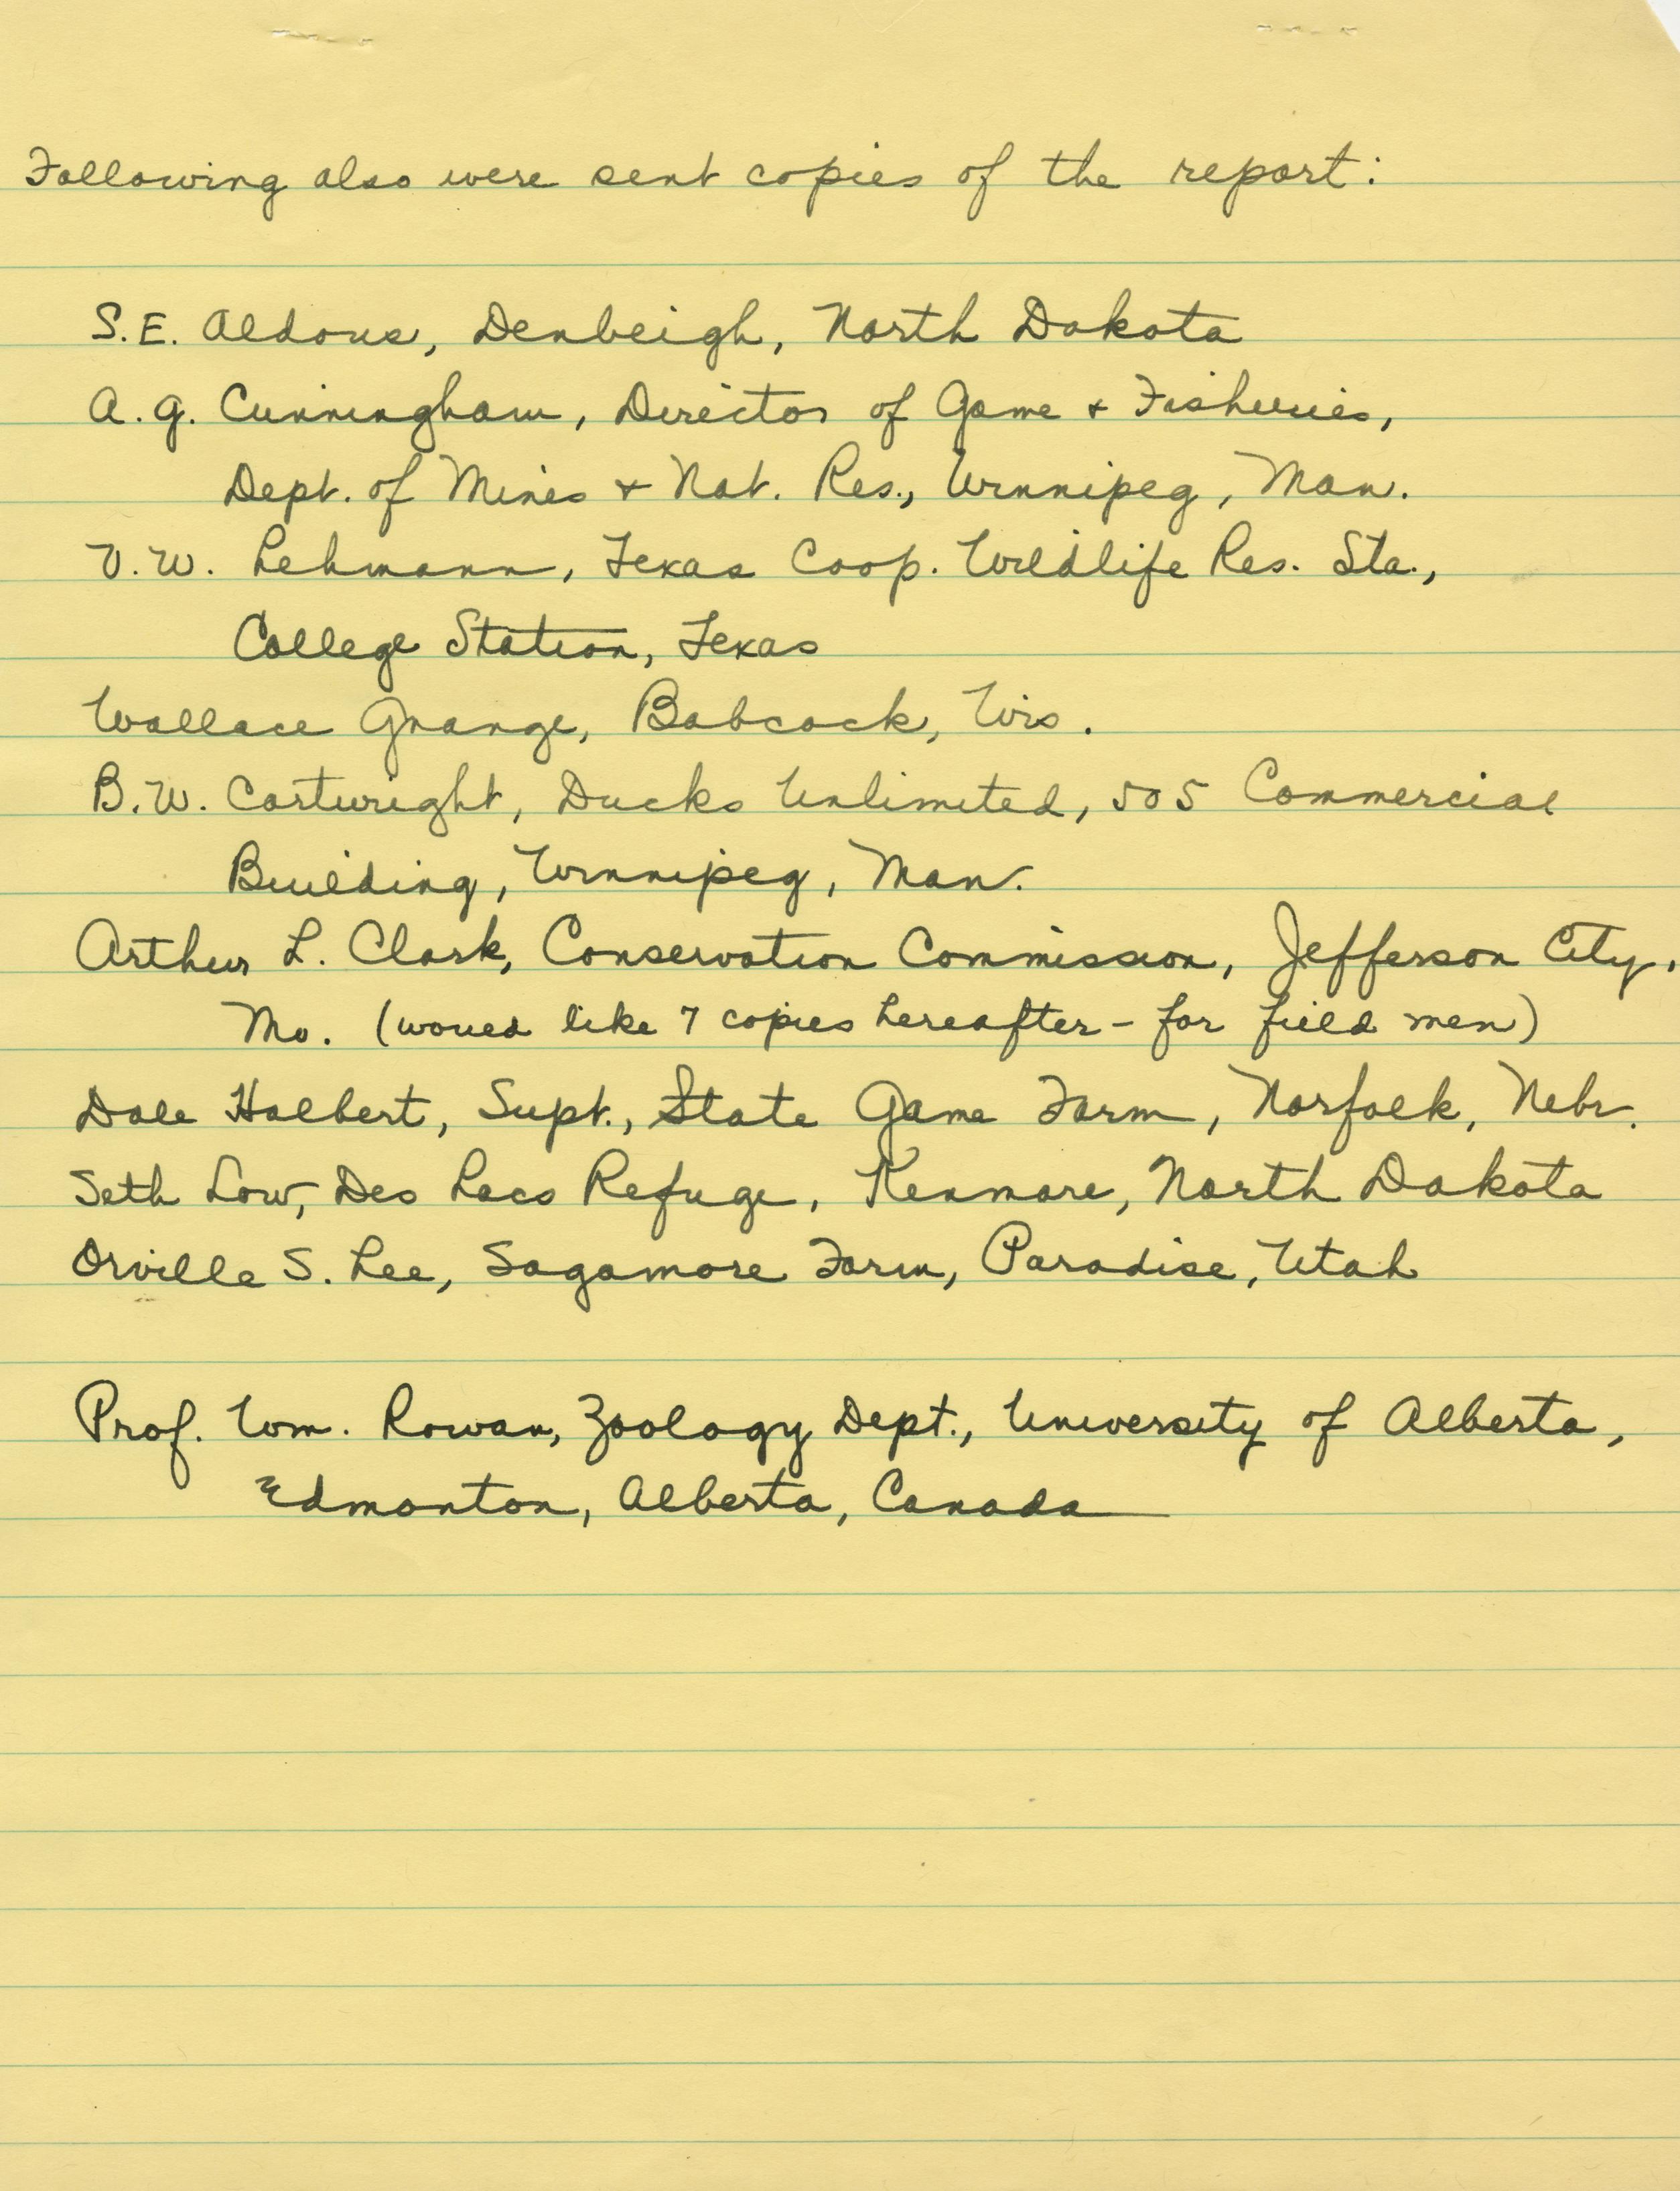 Following also were sent copies of the report:
S.E. Aldous, Denbeigh, North Dakota
A.G. Cunningham, Director of Game & Fisheries,
Dept. of Mines & Nat. Res., Winnipeg, Man.
V.W. Lehmann, Texas Coop. Wildlife Res. Sta.,
College Station, Texas
Wallace Grange, Babcock, Wis.
B.W. Cartwright, Ducks Unlimited, 505 Commercial
Building, Winnipeg, Man.
Arthur L. Clark, Conservation Commission, Jefferson City,
Mo. (would like 7 copies hereafter - for field men)
Dale Halbert, Supt., State Game Farm, Norfolk, Nebr.
Seth Low, Des Lacs Refuge, Kenmare, North Dakota
Orville S. Lee, Sagamore Farm, Paradise, Utah
Prof. Wm. Rowan, Zoology Dept., University of Alberta,
Edmonton, Alberta, Canada